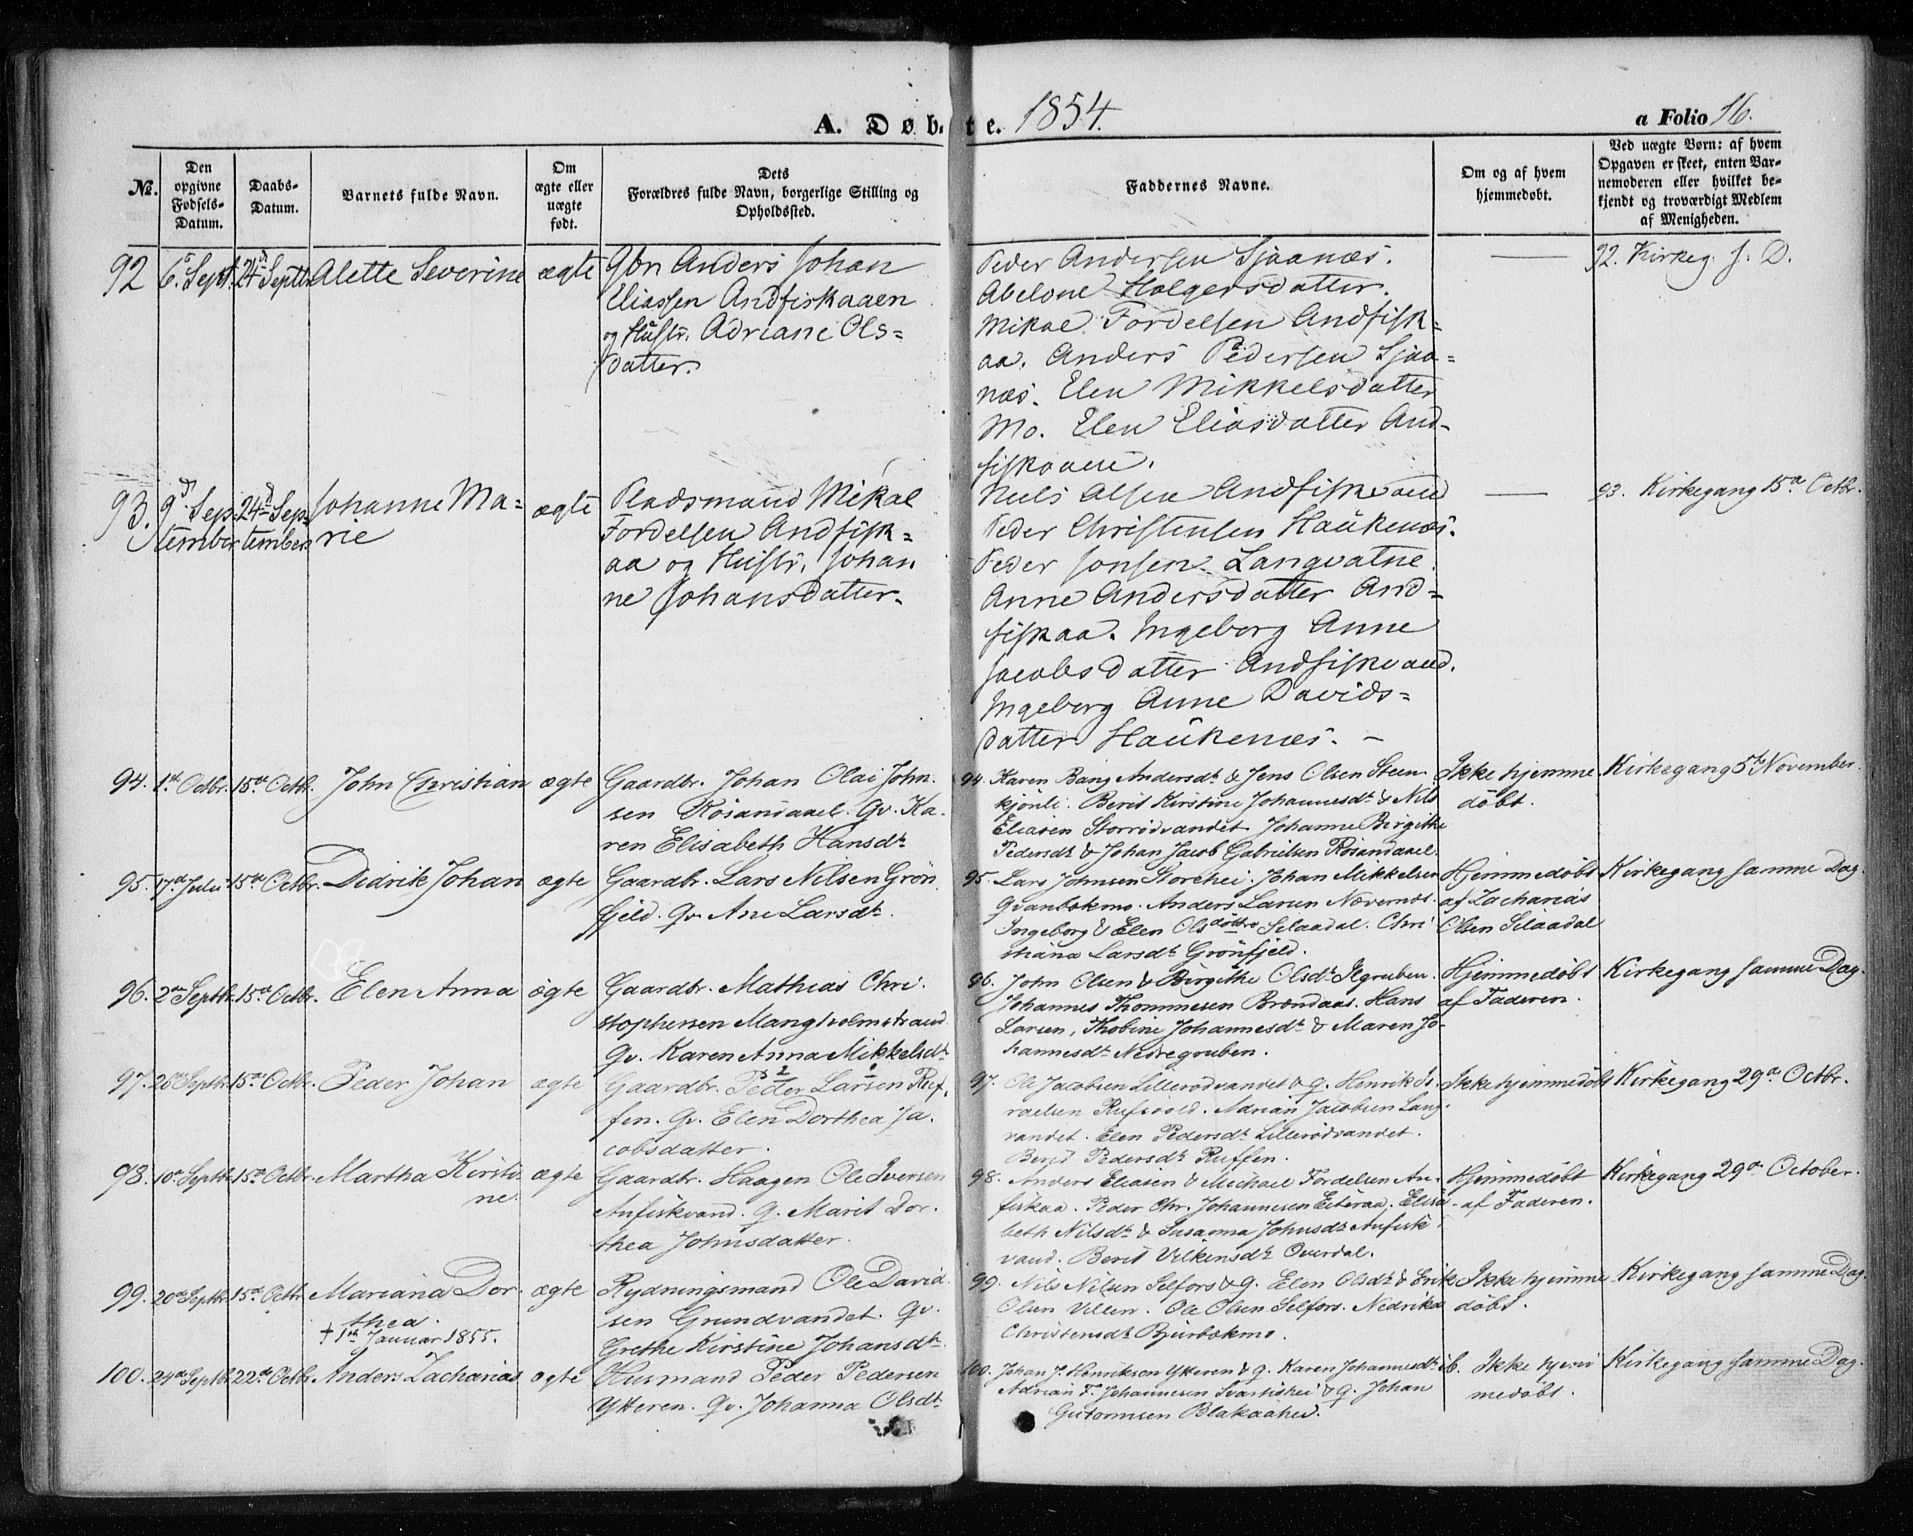 A. Døbte. 1854.
a Folio 16.
No.
Den opgivne Fødsels-Datum.
Daabs-Datum.
Barnets fulde Navn.
Om ægte eller uægte født.
Dets Forældres fulde Navn, borgerlige Stilling og Opholdssted.
Faddernes Navne.
Om og af hvem hjemmedøbt.
Ved uægte Børn: af hvem Opgaven er skeet, enten Barnemoderen eller hvilket bekjendt og troværdigt Medlem af Menigheden.
92 6te Sept. 24de Septbr. Alette Severine ægte
Gbr Anders Johan
Eliassen Andfiskaaen
og Hustr. Adriane Ols=
datter.
Peder Andersen Sjaanæs.
Abelone Holgersdatter.
Mikal Fordelsen Andfisk=
aa. Anders Pedersen Sjaa=
næs. Elen Mikkelsdatter
Mo. Elen Eliasdatter And-
fiskaaen.
92. Kirkeg. s. D.
93. 9de Sep- 24de Sep- Johanne Ma- ægte
tember tember rie
Pladsmand Mikal
Fordelsen Andfisk=
aa og Hustr. Johan
ne Johansdatter.
Niels Olsen Andfiskvand
Peder Christensen Haukenæs.
Peder Jonsen Langvatne.
Anne Andersdatter And=
fiskaa. Ingeborg Anne
Jacobsdatter Andfiskvand.
Ingeborg Anne Davids=
datter Haukenæs. -
93. Kirkegang 15de Octbr.
94. 1ste Octbr. 15de Octbr. John Christian ægte
Gaardbr. Johan Olai John-
sen Rösandaael. Qv. Ka-
ren Elisabeth Hansdt.
94. Karen Bang Andersdt. & Jens Olsen Steen
kjönli. Berit Kirstine Johannesdt. & Nils
Eliasen Storrödvandet Johanne Birgithe
Pedersdt. & Johan Jacob Gabrielsen Rösandaael.
Ikke hjemme
döbt.
Kirkegang 5te November.
95. 17de Julii 15de Octbr. Didrik Johan ægte
Gaardbr. Lars Nilsen Grön
fjeld. Qv. Ane Larsdt.
95. Lars Johnsen Storehei. Johan Mikkelsen
Qvanbækmo. Anders Larsen Nævernæs.
Ingeborg & Elen Olsdöttre Selaadal. Chri
stiana Larsdt. Grönfjeld.
Hjemmedöbt
af Zacharias
Olsen Selaadal
Kirkegang samme Dag.
96. 2den Septbr. 15de Octbr. Elen Anna ægte
Gaardbr. Mathias Chri-
stophersen Mangholmstrand
Qv. Karen Anna Mikkelsdt.
96. John Olsen & Birgithe Olsdt. Ilgruben.
Johannes Thommesen Brændaas. Hans
Larsen, Thobine Johannesdt. & Maren Jo-
hannesdt. Nedregruben.
Hjemmedöbt
af Faderen.
Kirkegang samme Dag.
97. 26de Septbr. 15de Octbr. Peder Johan ægte
Gaardbr. Peder Larsen Ruf-
fen. Qv. Elen Dorthea Ja-
cobsdatter.
97. Ole Jacobsen Lillerödvandet & Q. Henrik Is-
raelsen Rufsvold. Adrian Jacobsen Lang-
vandet. Elen Pedersdt. Lillerödvandet.
Berit Pedersdt. Ruffen.
Ikke hjemmedöbt
Kirkegang 29de Octbr.
98. 10de Septbr. 15de Octbr. Martha Kirsti- ægte
ne.
Gaardbr. Haagen Ole Iversen
Anfiskvand. Q. Marit Dor-
thea Johnsdatter.
98. Anders Eliasen & Michael Fordelsen An-
fiskaa. Peder Chr. Johannesen Eiteraa. Elisa
beth Nilsdt. & Susanna Johnsdt. Anfisk
vand. Berit Velkensdt. Overdal.
Hjemmedöbt
af Faderen.
Kirkegang 29de October.
99. 20de Septbr. 15de Octbr. Mariana Dor- ægte
thea.
† 1ste Januar 1855.
Rydningsmand Ole David
sen Grundvandet. Qv.
Grethe Kirstine Johansdt.
99. Nils Nilsen Selfors & Q. Elen Olsdt. & Erik
Olsen Villen. Ole Olsen Selfors. Nedrika
Christensdt. Bjurbækmo.
Ikke hjemme
döbt.
Kirkegang samme Dag.
100. 24de Septbr. 22de Octbr. Anders Zacharias ægte
Husmand Peder Pedersen
Ytteren. Qv. Johanna Olsdt.
100. Johan J. Henriksen Ytteren & Q. Karen Johannesdt. ib.
Adrian F. Johannesen Svartishei & Q. Johan
Guttormsen Blakaahei.
Ikke hjem
medöbt.
Kirkegang samme Dag.